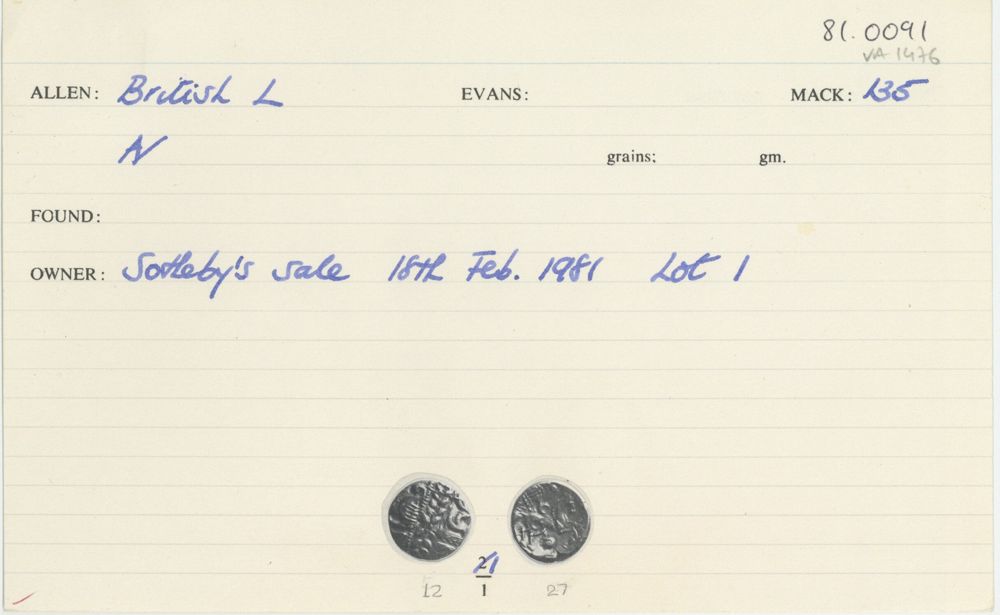 81.0091
VA 1476
ALLEN: British L EVANS: MACK: 135
N grains: gm.
FOUND:
OWNER: Sotheby's sale 18th Feb. 1981 Lot 1
1
12 1 27